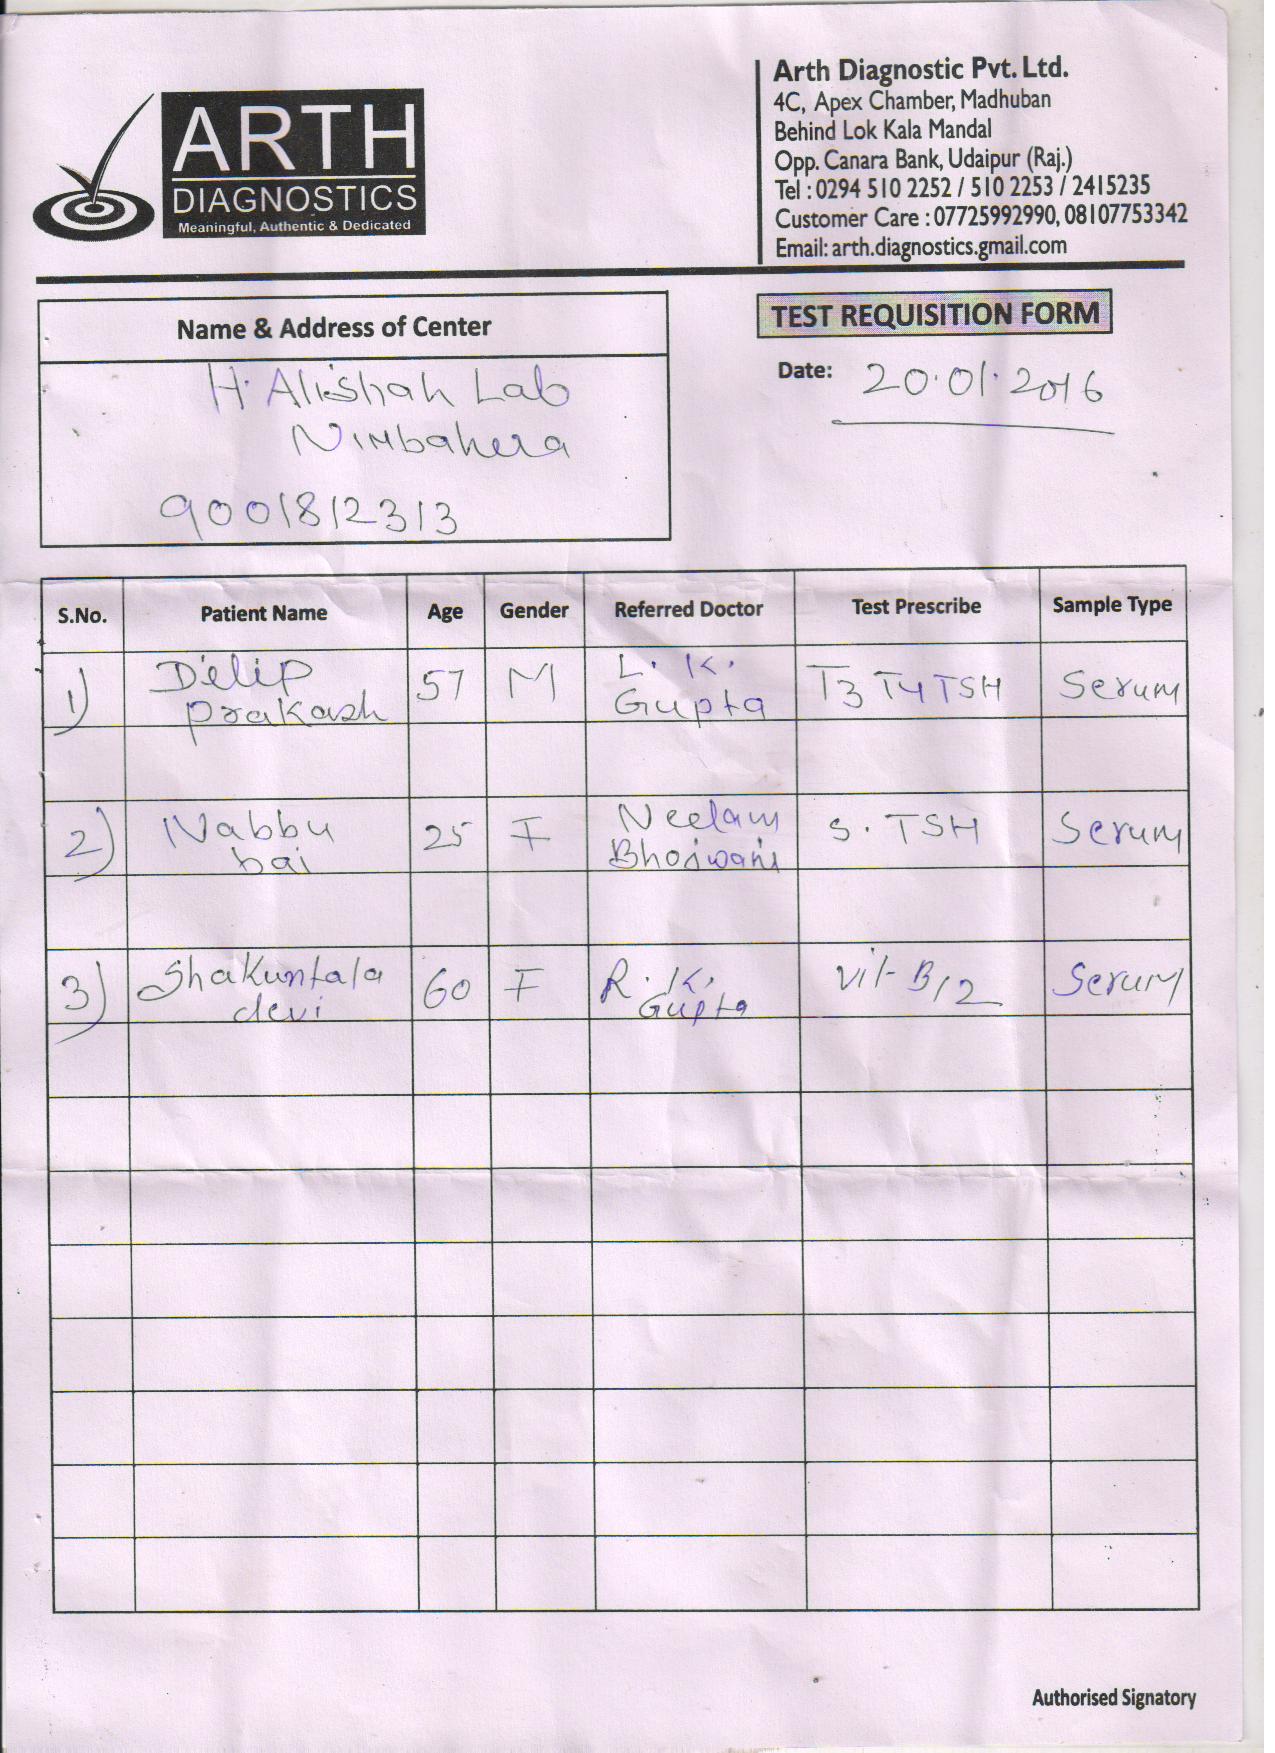 ARTH
DIAGNOSTICS
Meaningful, Authentic & Dedicated
Arth Diagnostic Pvt. Ltd.
4C, Apex Chamber, Madhuban
Behind Lok Kala Mandal
Opp. Canara Bank, Udaipur (Raj.)
Tel : 0294 510 2252 / 510 2253 / 2415235
Customer Care : 07725992990, 08107753342
Email: arth.diagnostics.gmail.com
Name & Address of Center
H. Alishah Lab
Nimbahera
9001812313
TEST REQUISITION FORM
Date: 20.01.2016
S.No. Patient Name Age Gender Referred Doctor Test Prescribe Sample Type
1) Dilip prakash 57 M L. K. Gupta T3 T4 TSH Serum
2) Nabbu bai 25 F Neelam Bhojwani S. TSH Serum
3) Shakuntala devi 60 F R. K. Gupta Vit-B12 Serum
Authorised Signatory